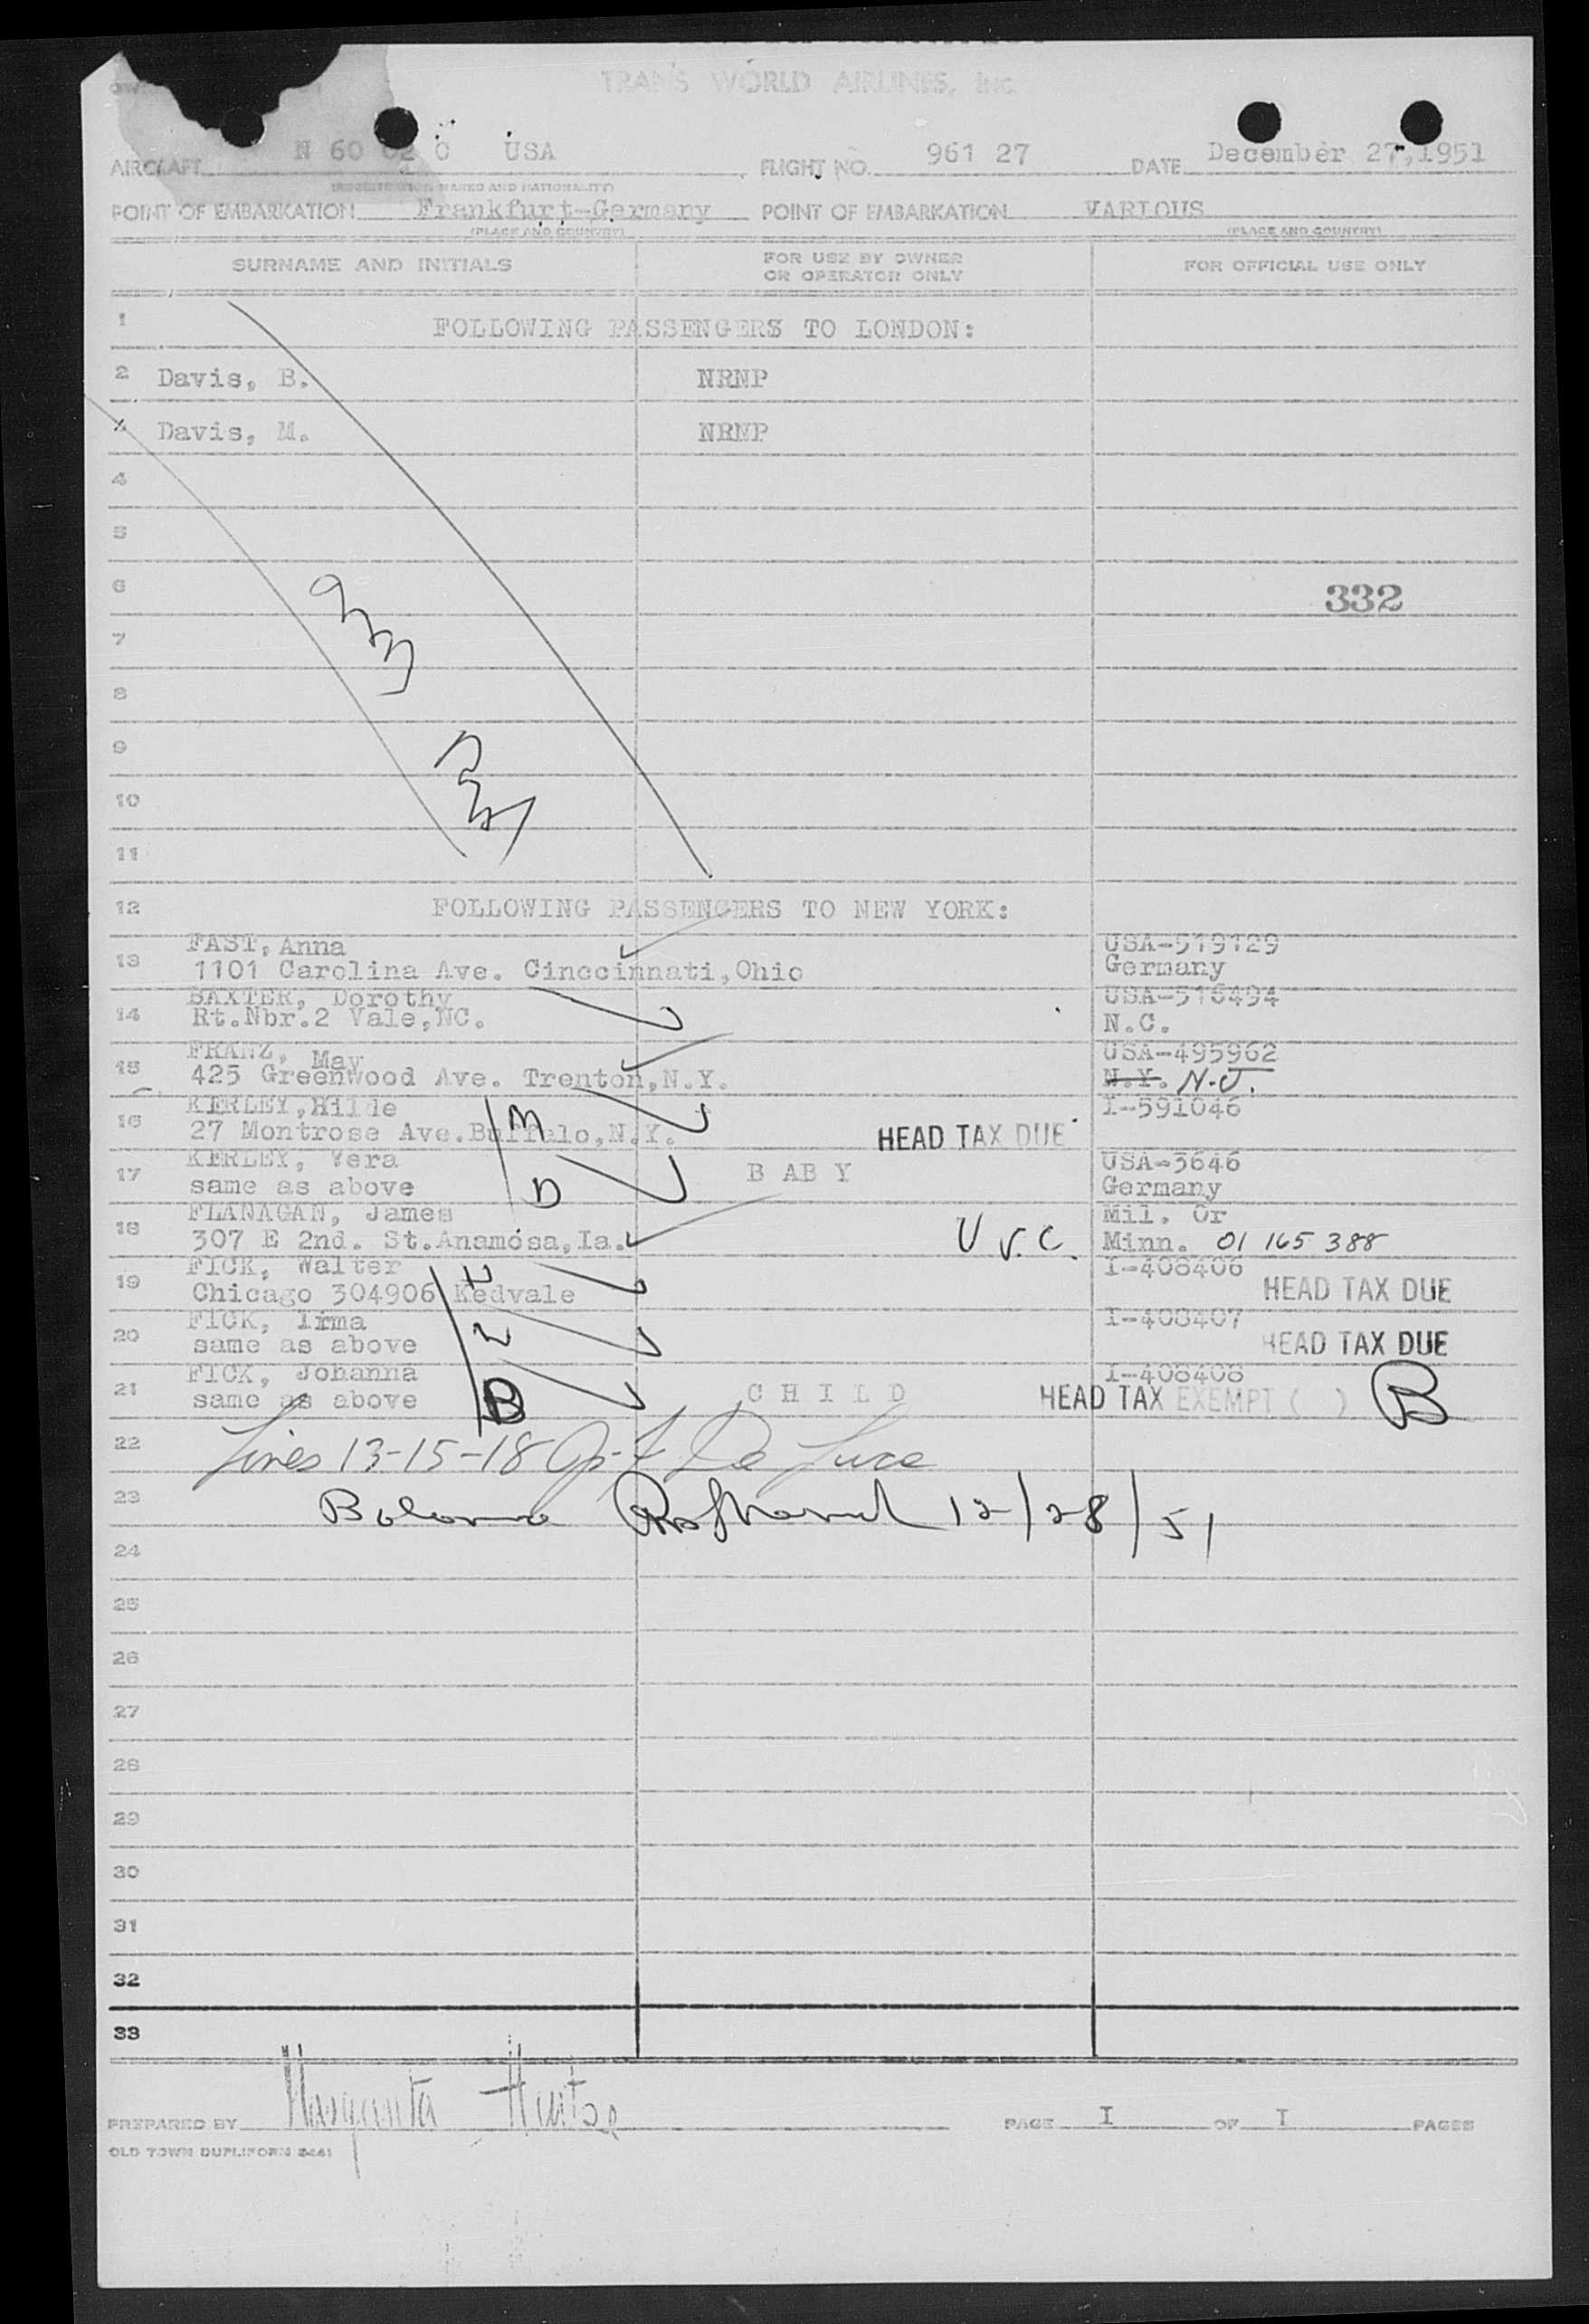 TRANS WORLD AIRLINES, Inc.
AIRCRAFT N 60 02 C USA FLIGHT NO. 961 27 DATE December 27, 1951
(REGISTRATION MARKS AND NATIONALITY)
POINT OF EMBARKATION Frankfurt-Germany POINT OF EMBARKATION VARIOUS
(PLACE AND COUNTRY) (PLACE AND COUNTRY)
SURNAME AND INITIALS FOR USE BY OWNER OR OPERATOR ONLY FOR OFFICIAL USE ONLY
1 FOLLOWING PASSENGERS TO LONDON:
2 Davis, B. NRNP
3 Davis, M. NRNP
4
5
6 332
7
8
9
10
11
12 FOLLOWING PASSENGERS TO NEW YORK:
13 FAST, Anna USA-519129
1101 Carolina Ave. Cinccinnati, Ohio Germany
14 BAXTER, Dorothy USA-516494
Rt.Nbr.2 Vale, NC. N.C.
15 FRANZ, May USA-495962
425 Greenwood Ave. Trenton, N.Y. N.Y. N.J.
16 KERLEY, Hilde I-591046
27 Montrose Ave. Buffalo, N.Y. HEAD TAX DUE
17 KERLEY, Vera BABY USA-3646
same as above Germany
18 FLANAGAN, James Mil. Or
307 E 2nd. St. Anamosa, Ia. Minn. 01 165 388
19 FICK, Walter I-408406
Chicago 304906 Kedvale HEAD TAX DUE
20 FICK, Irma I-408407
same as above HEAD TAX DUE
21 FICK, Johanna I-408408
same as above CHILD HEAD TAX EXEMPT ( ) B
22 Lines 13-15-18
23 12/28/51
24
25
26
27
28
29
30
31
32
33
PREPARED BY PAGE I OF I PAGES
OLD TOWN DUPLIFORM 8441